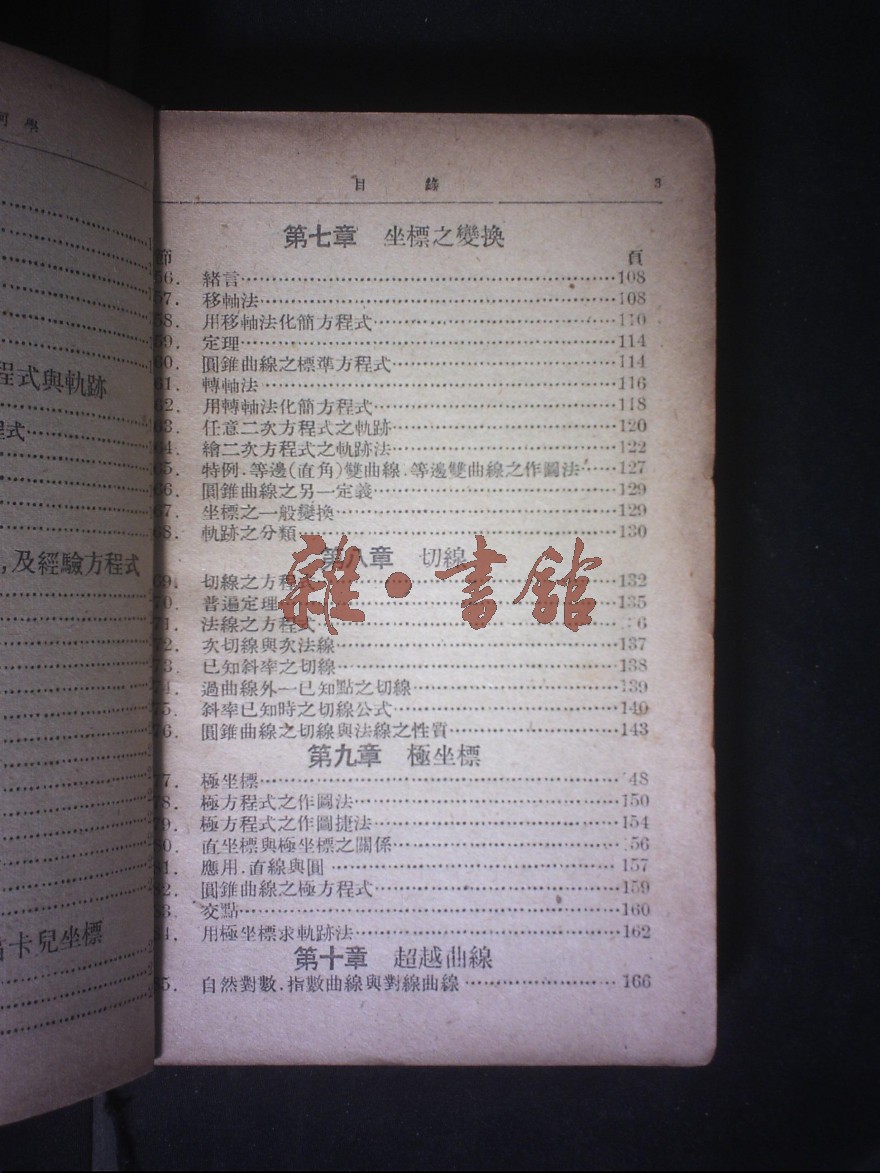 何學
程式與軌跡
程式
, 及經驗方程式
卡兒坐標
目 錄 3
第七章 坐標之變換
節 頁
56. 緒言 108
57. 移軸法 108
58. 用移軸法化簡方程式 110
59. 定理 114
60. 圓錐曲線之標準方程式 114
61. 轉軸法 116
62. 用轉軸法化簡方程式 118
63. 任意二次方程式之軌跡 120
64. 繪二次方程式之軌跡法 122
65. 特例.等邊(直角)雙曲線.等邊雙曲線之作圖法 127
66. 圓錐曲線之另一定義 129
67. 坐標之一般變換 129
68. 軌跡之分類 130
第八章 切線
69. 切線之方程式 132
70. 普遍定理 135
71. 法線之方程式 6
72. 次切線與次法線 137
73. 已知斜率之切線 138
74. 過曲線外一已知點之切線 139
75. 斜率已知時之切線公式 140
76. 圓錐曲線之切線與法線之性質 143
第九章 極坐標
77. 極坐標 48
78. 極方程式之作圖法 150
79. 極方程式之作圖捷法 154
80. 直坐標與極坐標之關係 56
81. 應用.直線與圓 157
82. 圓錐曲線之極方程式 159
83. 交點 160
84. 用極坐標求軌跡法 162
第十章 超越曲線
85. 自然對數.指數曲線與對線曲線 166
雜·書館